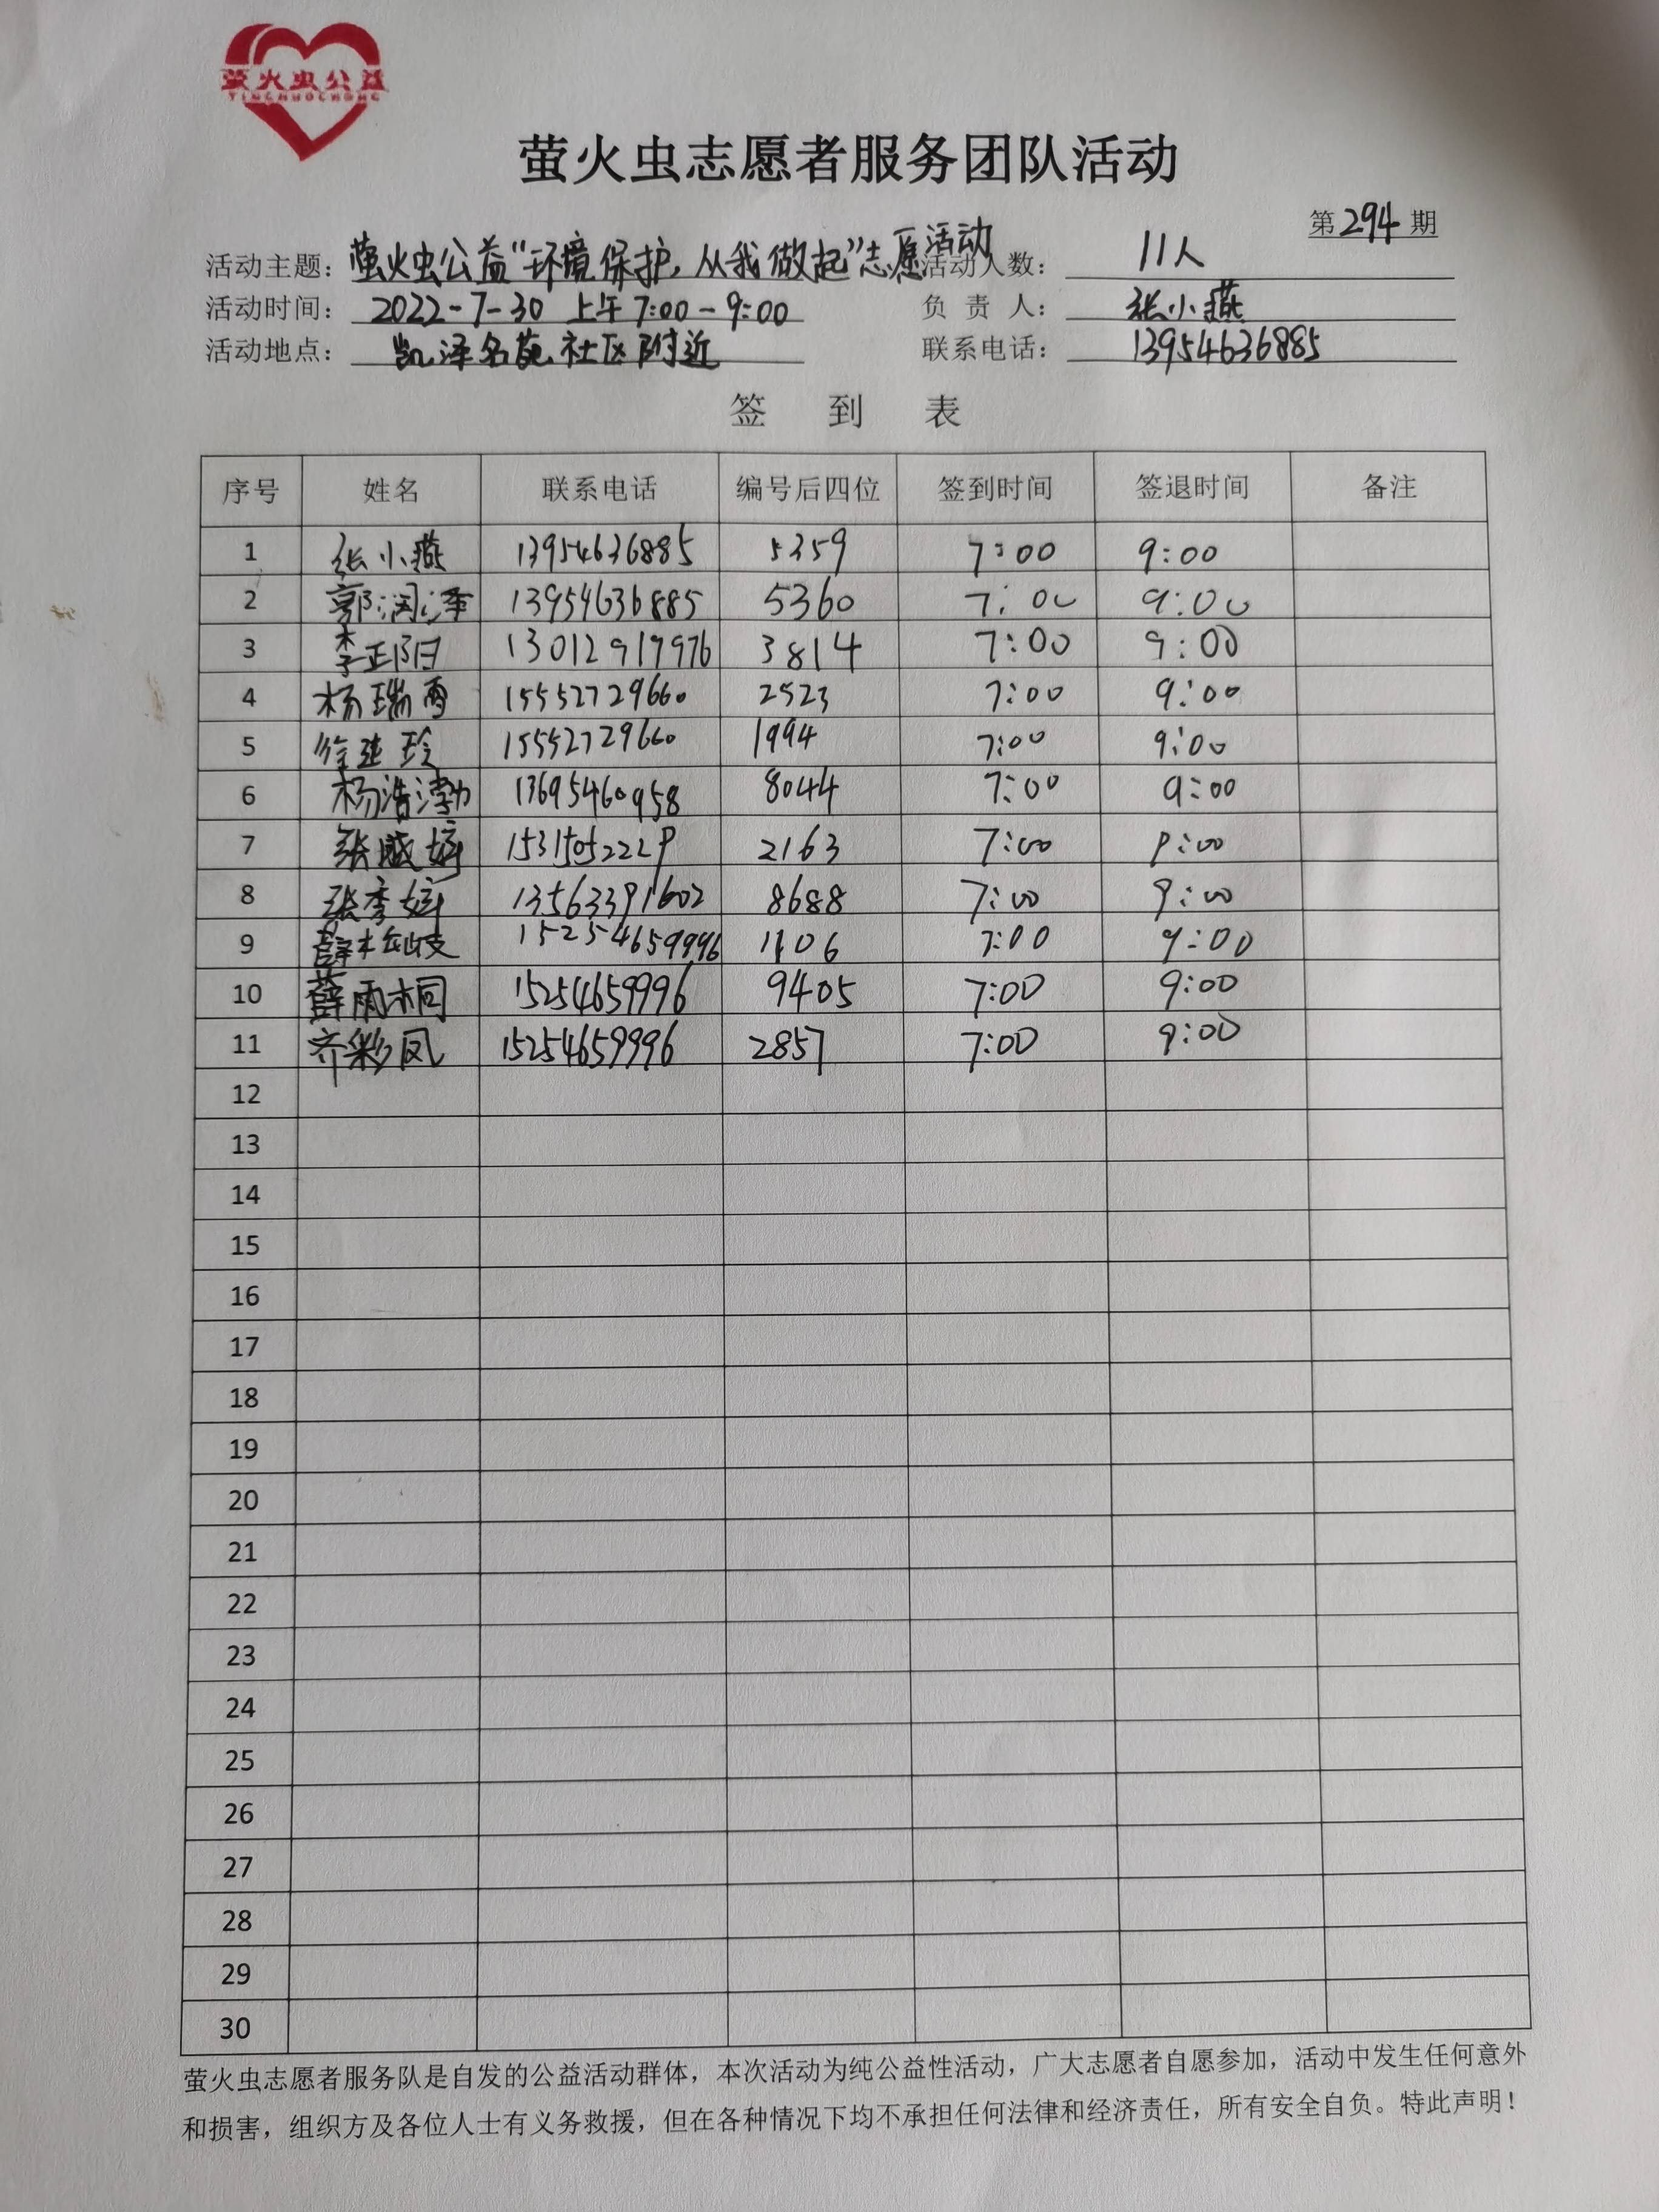 萤火虫公益
YINGHUOCHONG
萤火虫志愿者服务团队活动
第294期
活动主题：萤火虫公益“环境保护，从我做起”志愿活动 活动人数：11人
活动时间：2022-7-30 上午7:00-9:00 负责人：张小燕
活动地点：凯泽名苑社区附近 联系电话：13954636885
签到表
序号 姓名 联系电话 编号后四位 签到时间 签退时间 备注
1 张小燕 13954636885 5359 7:00 9:00
2 郭润泽 13954636885 5360 7:00 9:00
3 李正阳 13012917976 3814 7:00 9:00
4 杨瑞雪 15552729660 2523 7:00 9:00
5 徐延玲 15552729660 1994 7:00 9:00
6 杨浩渤 13695460958 8044 7:00 9:00
7 张盛婷 15315052229 2163 7:00 9:00
8 张李婷 13563391602 8688 7:00 9:00
9 薛 15254659996 1106 7:00 9:00
10 薛雨桐 15254659996 9405 7:00 9:00
11 齐彩凤 15254659996 2857 7:00 9:00
12
13
14
15
16
17
18
19
20
21
22
23
24
25
26
27
28
29
30
萤火虫志愿者服务队是自发的公益活动群体，本次活动为纯公益性活动，广大志愿者自愿参加，活动中发生任何意外
和损害，组织方及各位人士有义务救援，但在各种情况下均不承担任何法律和经济责任，所有安全自负。特此声明！